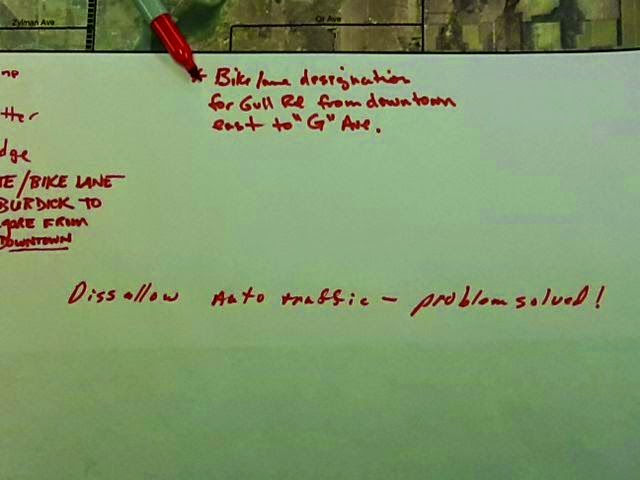 Zylman Ave
Qr Ave
* Bike lane designation
for Gull Rd from downtown
east to "G" Ave.
tter
dge
TE/BIKE LANE
BURDICK TO
GORE FROM
DOWNTOWN
Dissallow Auto traffic - problem solved!